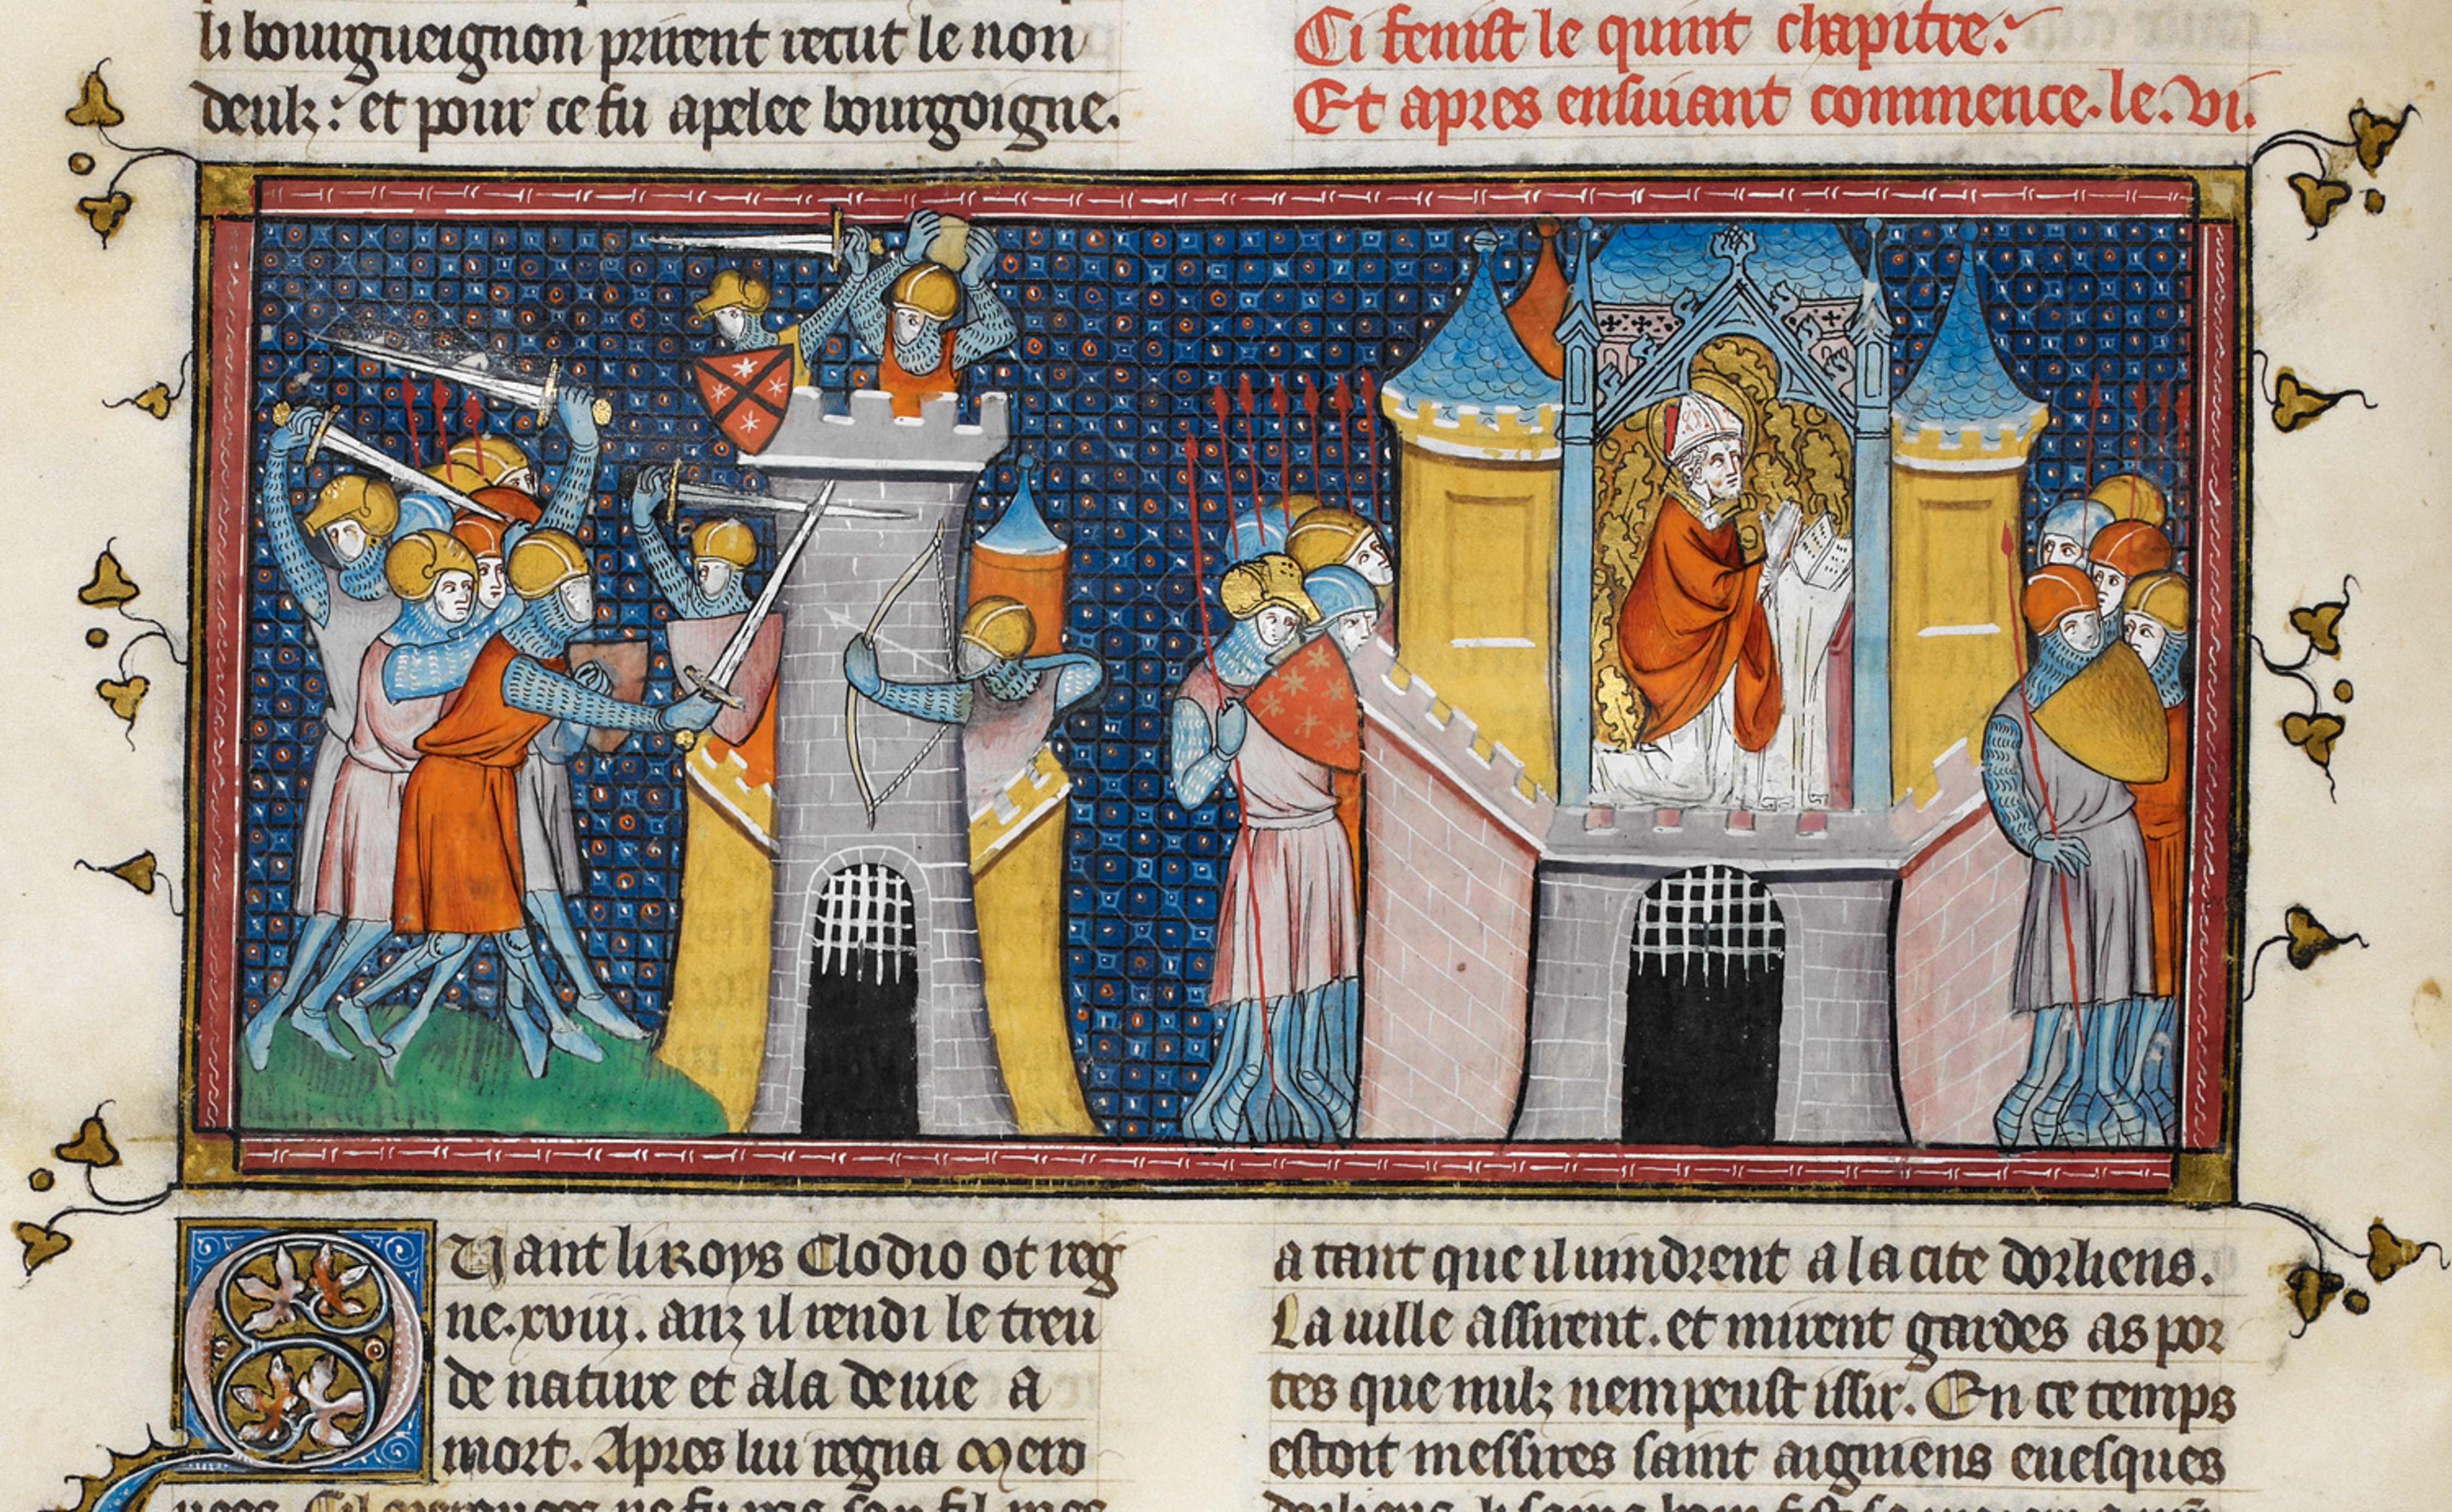 li bourgueignon prirent recut le non
deulz: et pour ce fu apelee bourgoigne.
Ci fenist le quint chapitre.
Et apres ensuiant commence. le. vi.
Quant li roys Clodio ot reg
ne. xviij. anz il rendi le treu
de nature et ala de uie a
mort. Apres lui regna Mero
uees. Cil ne fu pas son filz mes
a tant que il uindrent a la cite dorliens.
La uille assirent. et mirent gardes as por
tes que nulz nem peust issir. En ce temps
estoit messires saint aigniens euesques
dorliens